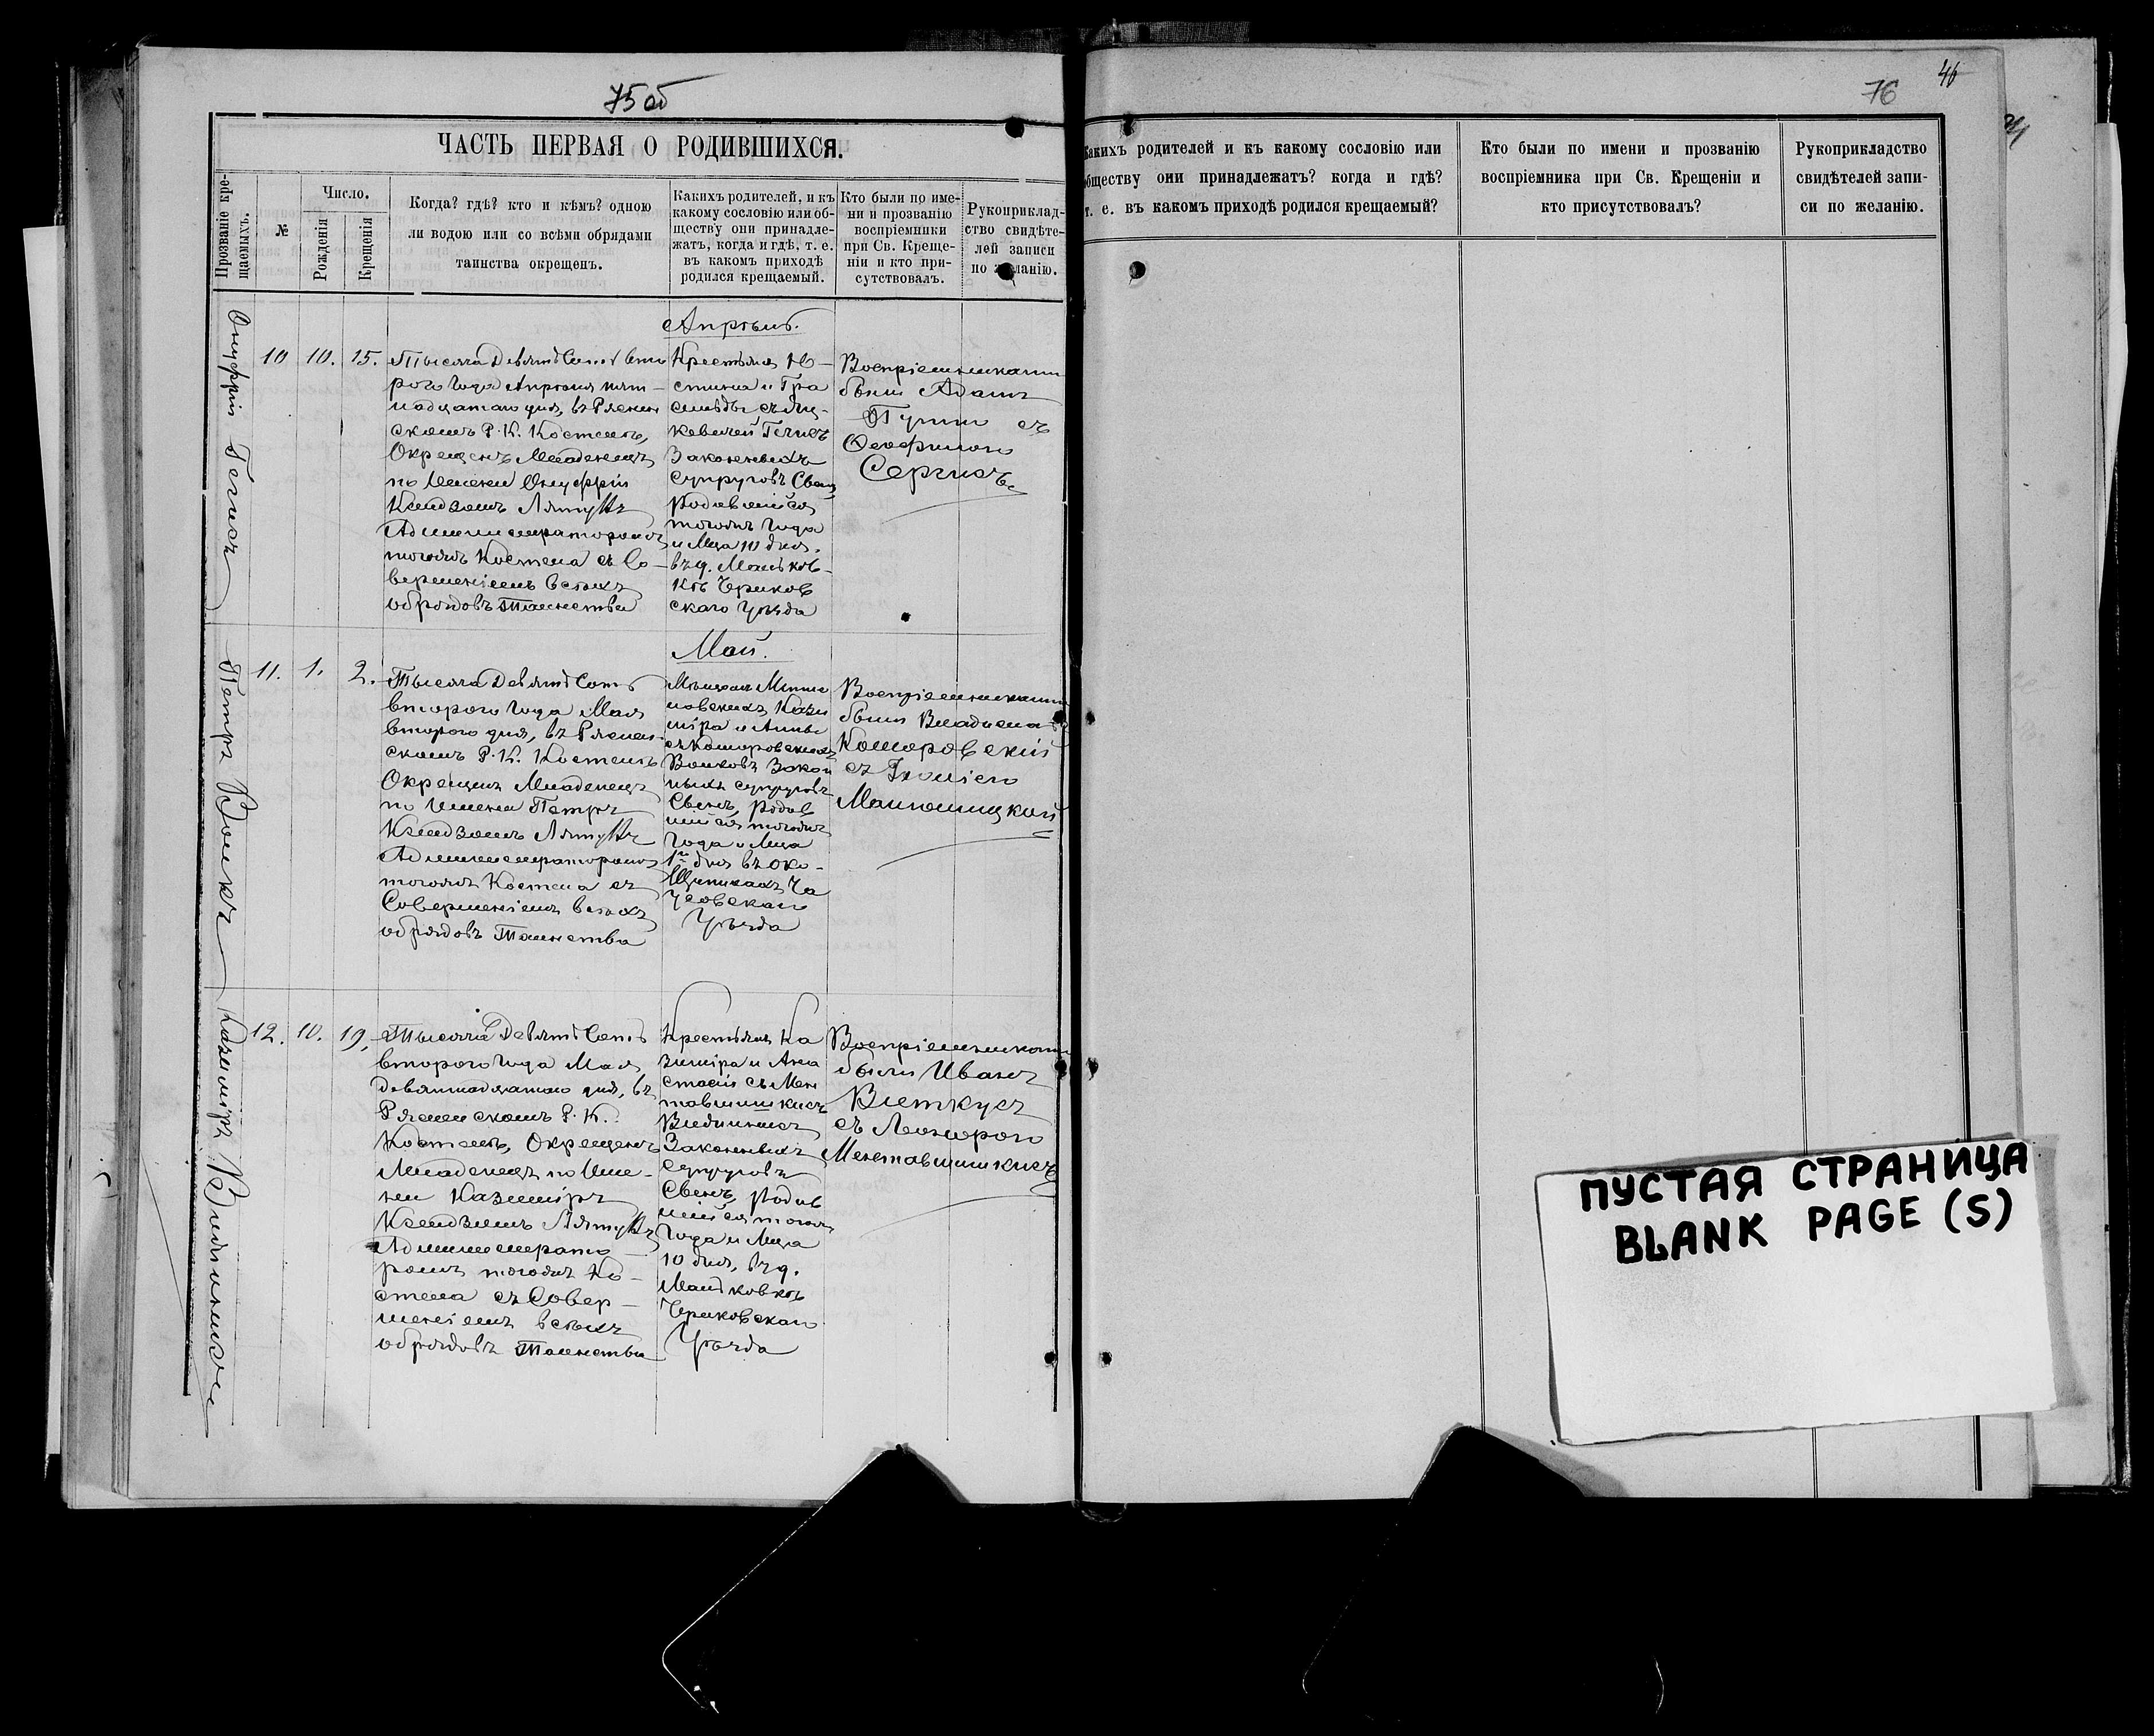 75 об
ЧАСТЬ ПЕРВАЯ О РОДИВШИХСЯ.
Прозваніе кре-
щаемыхъ.
№
Число.
Рожденія
Крещенія
Когда? гдѣ? кто и кѣмъ? одною
ли водою или со всѣми обрядами
таинства окрещенъ.
Какихъ родителей, и къ
какому сословію или об-
ществу они принадле-
жатъ, когда и гдѣ, т. е.
въ какомъ приходѣ
родился крещаемый.
Кто были по име-
ни и прозванію
воспріемники
при Св. Креще-
ніи и кто при-
сутствовалъ.
Рукоприклад-
ство свидѣте-
лей записи
по желанію.
Апрѣль.
Онуфрій
10 10. 15.
Тысяча Девятьсотъ вто
рого года Апрѣля пят-
надцатаго дня, въ Рясен
скомъ Р. К. Костелѣ,
Окрещенъ Младенецъ
по Имени Онуфрій
Ксендзомъ
Администраторомъ
тогожъ Костела съ Со-
вершеніемъ всѣхъ
обрядовъ Таинства
Крестьянъ Ю-
стина и
Законныхъ
Супруговъ Сынъ
Родившійся
тогожъ года
и Мца 10 дня.
въ д.
Чериков
скаго Уѣзда
Воспріемниками
были Адамъ
съ
Май.
Петръ Волкъ
11. 1. 2.
Тысяча Девятьсотъ
второго года Мая
второго дня, въ Рясен-
скомъ Р. К. Костелѣ
Окрещенъ Младенецъ
по Имени Петръ
Ксендзомъ
Администраторомъ
тогожъ Костела съ
Совершеніемъ всѣхъ
обрядовъ Таинства
Кази
міра и Анны
съ Коморовскихъ
Волковъ Закон
ныхъ супруговъ
Сынъ, родив
шійся тогожъ
Года и Мца
1го дня въ око-
Ча
усовскаго
Уѣзда
Воспріемниками
были
Коморовскій
съ
Казиміръ
12. 10. 19.
Тысяча Девятьсотъ
второго года Мая
девятнадцатаго дня, въ
Рясенскомъ Р. К.
Костелѣ, Окрещенъ
Младенецъ по Име-
ни Казиміръ
Ксендзомъ
Администрато-
ромъ тогожъ Ко-
стела съ Совер-
шеніемъ всѣхъ
обрядовъ Таинства
Крестьянъ Ка
зиміра и Ана
стасіи съ
Законныхъ
Супруговъ
Сынъ, Родив
шійся тогожъ
Года и Мца
10 дня, въ д.
Чериковскаго
Уѣзда
Воспріемниками
были Иванъ
съ
76
46
Какихъ родителей и къ какому сословію или
обществу они принадлежатъ? когда и гдѣ?
т. е. въ какомъ приходѣ родился крещаемый?
Кто были по имени и прозванію
воспріемника при Св. Крещеніи и
кто присутствовалъ?
Рукоприкладство
свидѣтелей запи-
си по желанію.
ПУСТАЯ СТРАНИЦА
BLANK PAGE (S)